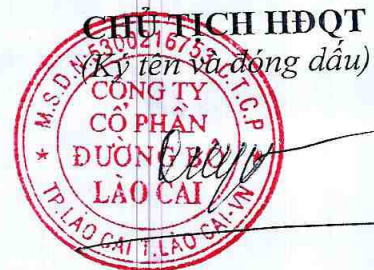 CHỦ TỊCH HĐQT
(Ký tên và đóng dấu)
M.S.D.N:5300216753-C.T.C.P
CÔNG TY
CỔ PHẦN
ĐƯỜNG BỘ
LÀO CAI
TP.LÀO CAI T.LÀO CAI-VN